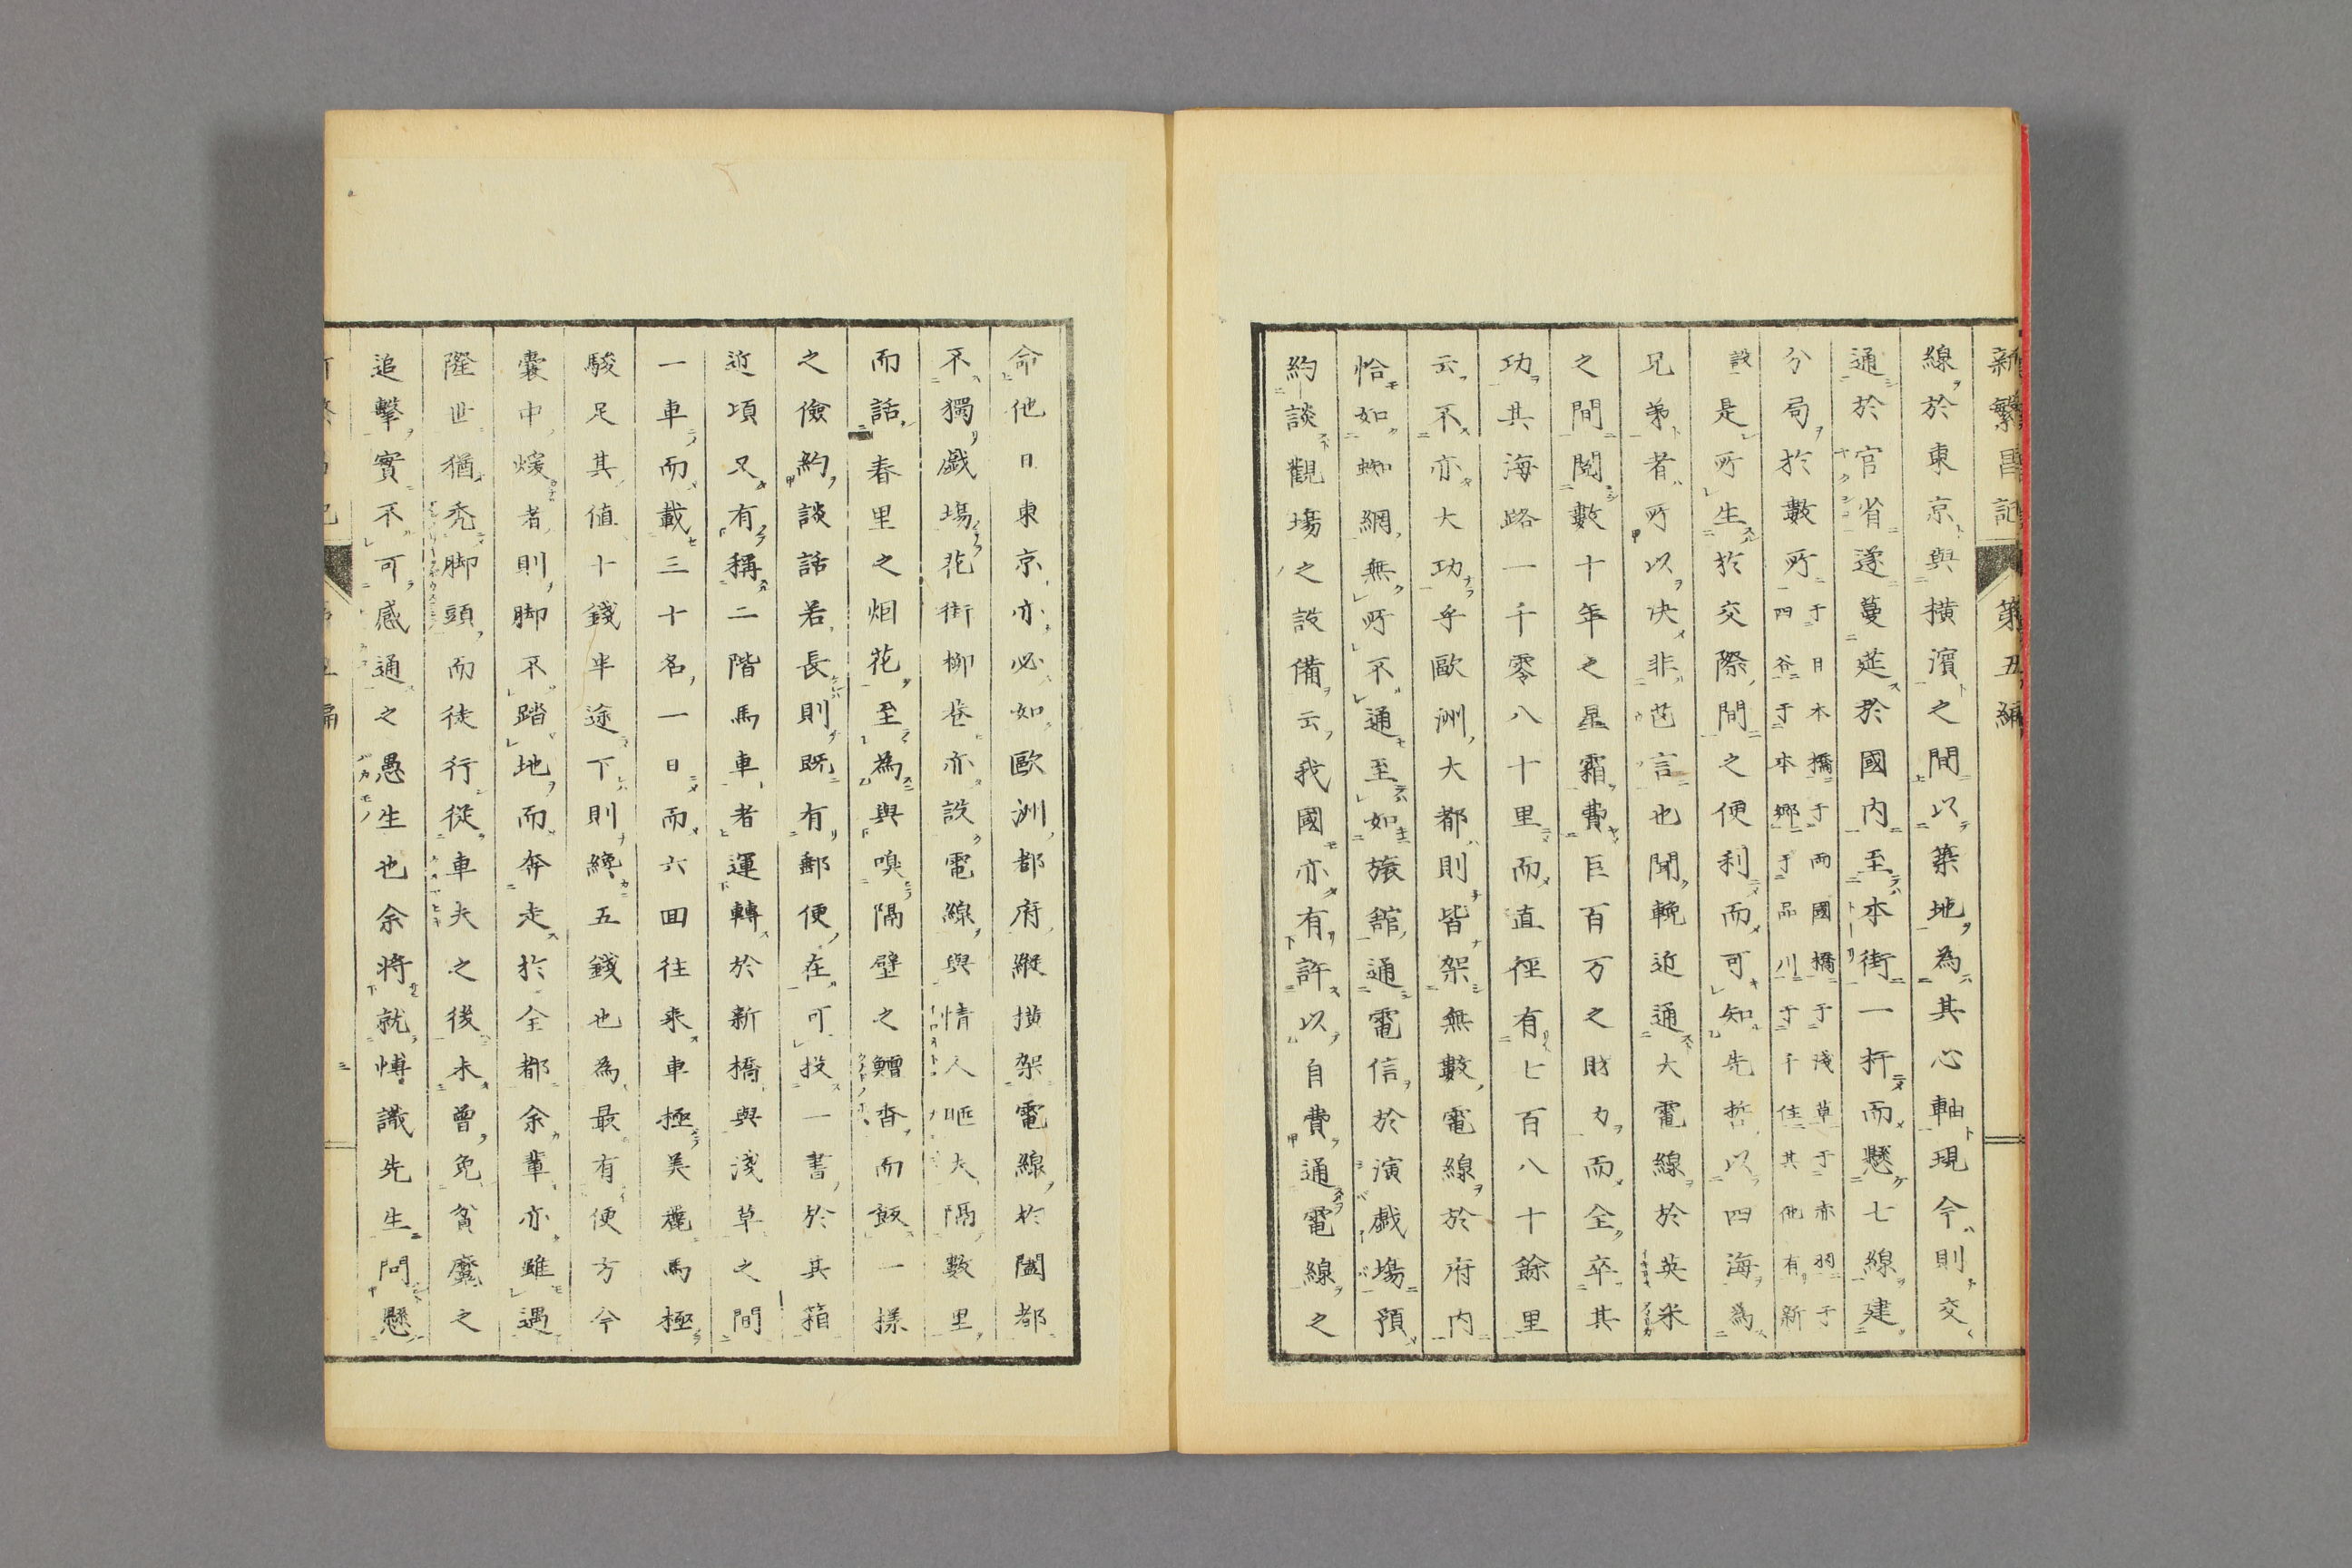 新繁昌記 第五編
線於東京與横濱之間以築地為其心軸現今則交
通於官省遂蔓莚於國内至本街一杆而懸七線建
分局於數所于日本橋于兩國橋于淺草于赤羽于四谷于本郷于品川于千住其他有新
設是所生於交際間之便利而可知先哲以四海為
兄弟者所以决非芭言也聞輓近通大電線於英米
之間閲數十年之星霜費巨百万之財力而全卒其
功其海路一千零八十里而直徑有七百八十餘里
云不亦大功乎歐洲大都則皆架無數電線於府内
恰如蜘網無所不通至如旅舘通電信於演戯塲預
約談觀塲之設備云我國亦有許以自費通電線之
命他日東京亦必如歐洲都府縱横架電線於闔都
不獨戯塲花街柳巷亦設電線與情人晤夫隔數里
而話春里之烟花至為與嗅隔壁之鱣香而飯一樣
之儉約談話若長則既有郵便在可投一書於其箱
近項又有稱二階馬車者運轉於新橋與淺草之間
一車而載三十名一日而六回往來車極美麗馬極
駿足其値十錢半途下則纔五錢也為最有便方今
囊中煖者則脚不踏地而奔走於全都余輩亦雖遇
隆世猶禿脚頭而徒行從車夫之後未曾免貧魔之
追撃實不可感通之愚生也余将就博識先生問懸